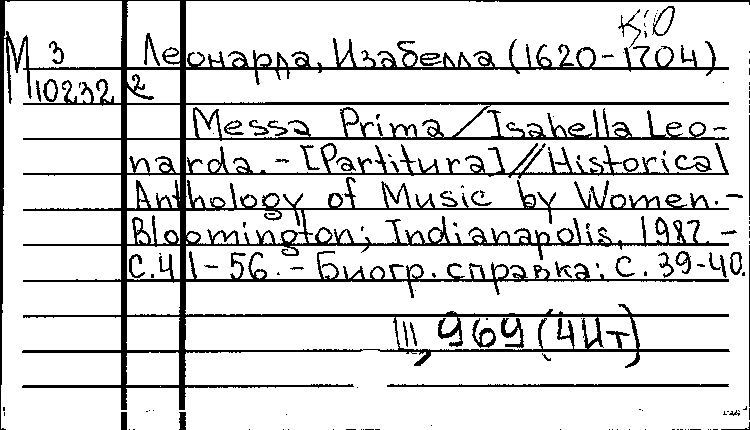 К;0
М 3 Леонарда, Изабелла (1620-1704)
10232 2
Messa Prima / Isabella Leo-
narda. - [Partitura] // Historical
Anthology of Music by Women. -
Bloomington; Indianapolis, 1987. -
С. 41-56. - Биогр. справка: С. 39-40.
III, 969 (4Ит)